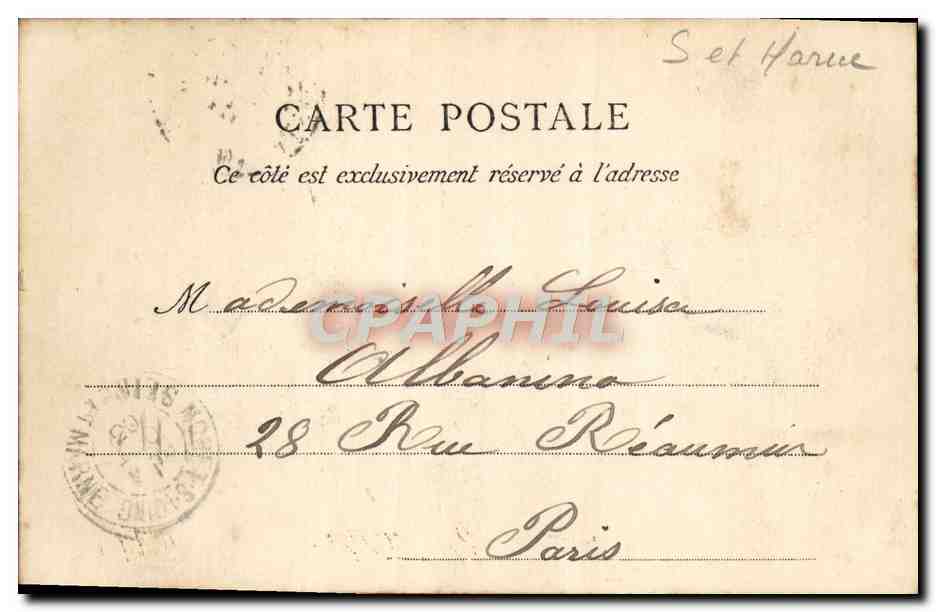 S et Marne
CARTE POSTALE
Ce côté est exclusivement réservé à l'adresse
Mademoiselle Louisa
CPAPHIL
Albanino
28 Rue Réaumur
Paris
SEINE ET MARNE